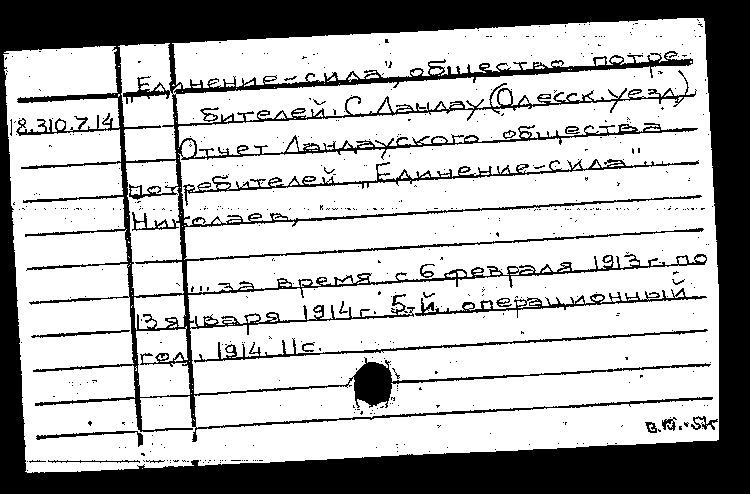 „Единение-сила", общество потре-
бителей. С. Ландау (Одесск. уезд)
18.310.7.14
Отчет Ландауского общества
потребителей „Единение-сила"...
Николаев,
...за время с 6 февраля 1913 г. по
13 января 1914 г. 5-й операционный
год. 1914. 11 с.